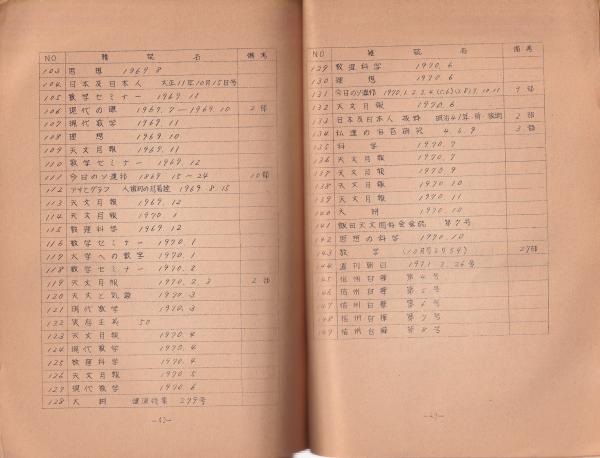 NO 雑誌名 備考
103 思想 1969.8
104 日本及日本人 大正11年10月15日号
105 数学セミナー 1969.11
106 現代の眼 1969.7—1969.10 2部
107 現代数学 1969.11
108 理想 1969.10
109 天文月報 1969.11
110 数学セミナー 1969.12
111 今日のソ連邦 1969 15〜24 10部
112 アサヒグラフ 1969.8.15
113 天文月報 1969.12
114 天文月報 1970.1
115 数理科学 1969.12
116 数学セミナー 1970.1
117 大学への数学 1970.1
118 数学セミナー 1970.2
119 天文月報 1970.2.3 2部
120 天文と気象 1970.3
121 現代数学 1970.3
122 実存主義 50
123 天文月報 1970.4
124 現代数学 1970.4
125 数理科学 1970.4
126 天文月報 1970.5
127 現代数学 1970.6
128 大法輪 279号
NO 雑誌名 備考
129 数理科学 1970.6
130 理想 1970.6
131 今日のソ連邦 9部
132 天文月報 1970.6
133 日本及日本人 2部
134 仏遺の各百研究 4.6.9 3部
135 科学 1970.7
136 天文月報 1970.7
137 天文月報 1970.9
138 天文月報 1970.10
139 天文月報 1970.11
140 1970.10
141 飯田天文同好会会誌 第7号
142 思想の科学 1970.10
143 数学 27部
144 週刊朝日 1971.2.26号
145 信州白樺 第4号
146 信州白樺 第5号
147 信州白樺 第6号
148 信州白樺 第7号
149 信州白樺 第8号